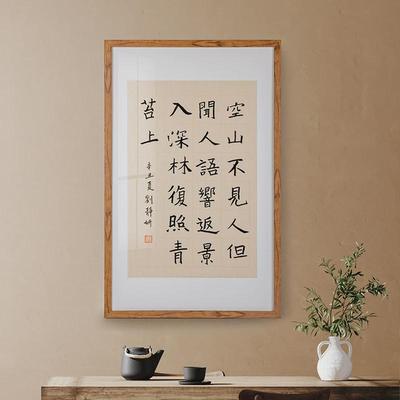 空山不見人但
聞人語響返景
入深林復照青
苔上
辛丑夏劉靜妍